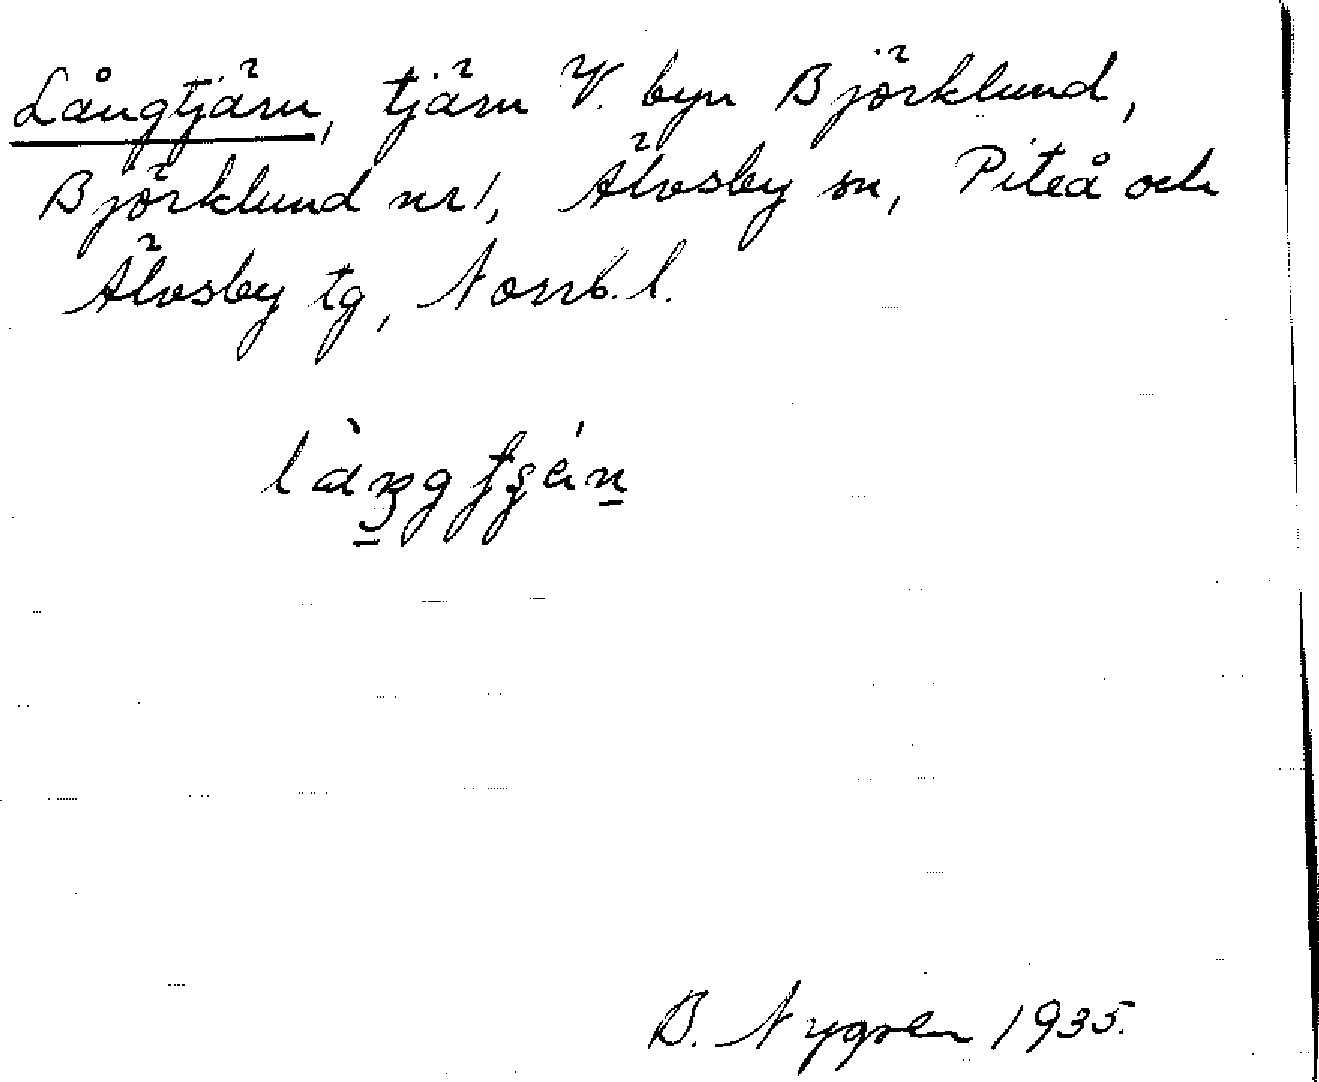 Långtjärn, tjärn V. byn Björklund,
Björklund nr 1, Älvsby sn, Piteå och
Älvsby tg, Norrb. l.
B. Nygren 1935.